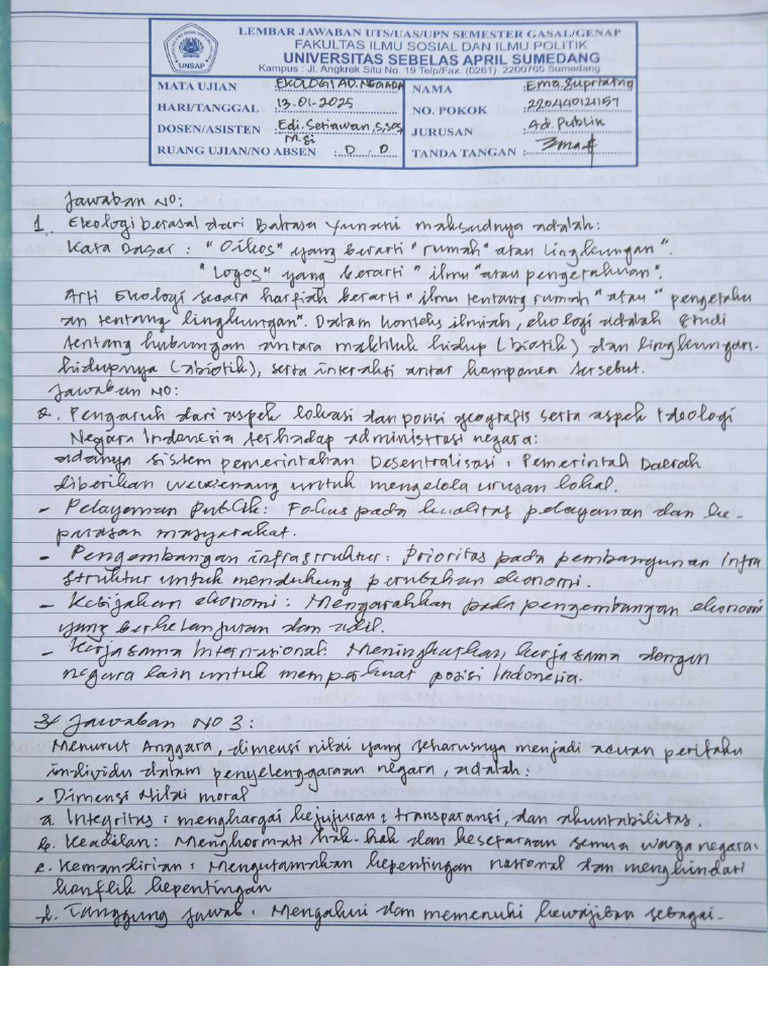 LEMBAR JAWABAN UTS/UAS/UPN SEMESTER GASAL/GENAP
FAKULTAS ILMU SOSIAL DAN ILMU POLITIK
UNIVERSITAS SEBELAS APRIL SUMEDANG
Kampus : Jl. Angkrek Situ No. 19 Telp/Fax. (0261) 2200765 Sumedang
UNSAP
MATA UJIAN : EKOLOGI AD. NEGARA
HARI/TANGGAL : 13-01-2025
DOSEN/ASISTEN : Edi Setiawan, S,sos
M.si
RUANG UJIAN/NO ABSEN : D . D
NAMA : Ema Supriatna
NO. POKOK : 220440121157
JURUSAN : Ad. Publik
TANDA TANGAN :
Jawaban NO:
1. Ekologi berasal dari Bahasa Yunani maksudnya adalah:
Kata Dasar : "Oikos" yang berarti "rumah" atau lingkungan".
"Logos" yang berarti "ilmu "atau pengetahuan".
Arti Ekologi secara harfiah berarti "ilmu tentang rumah" atau "pengetahu
an tentang lingkungan". Dalam konteks ilmiah, ekologi adalah studi
tentang hubungan antara makhluk hidup (biotik) dan lingkungan-
hidupnya (abiotik), serta interaksi antar komponen tersebut.
Jawaban NO:
2. Pengaruh dari aspek lokasi dan posisi geografis serta aspek Ideologi
Negara Indonesia terhadap administrasi negara:
adanya sistem pemerintahan Desentralisasi : Pemerintah Daerah
diberikan wewenang untuk mengelola urusan lokal.
- Pelayaman Publik: Fokus pada kualitas pelayanan dan ke-
puasan masyarakat.
- Pengembangan infrastruktur : Prioritas pada pembangunan infra
struktur untuk mendukung perubahan ekonomi.
- Kebijakan ekonomi : Mengarahkan pada pengembangan ekonomi
yang berkelanjutan dan adil.
- Kerjasama International: Meningkatkan kerjasama dengan
negara lain untuk memperkuat posisi Indonesia.
3/ Jawaban NO 3:
Menurut Anggara, dimensi nilai yang seharusnya menjadi acuan perilaku
individu dalam penyeleng-garaan negara, adalah:
- Dimensi Nilai moral
a. Integritas : menghargai kejujuran, transparansi, dan akuntabilitas.
b. Keadilan: Menghormati hak-hak dan kesetaraan semua warga negara.
c. Kemandirian : Mengutamakan kepentingan nasional dan menghindari
konflik kepentingan
d. Tanggung Jawab : Mengakui dan memenuhi kewajiban sebagai-